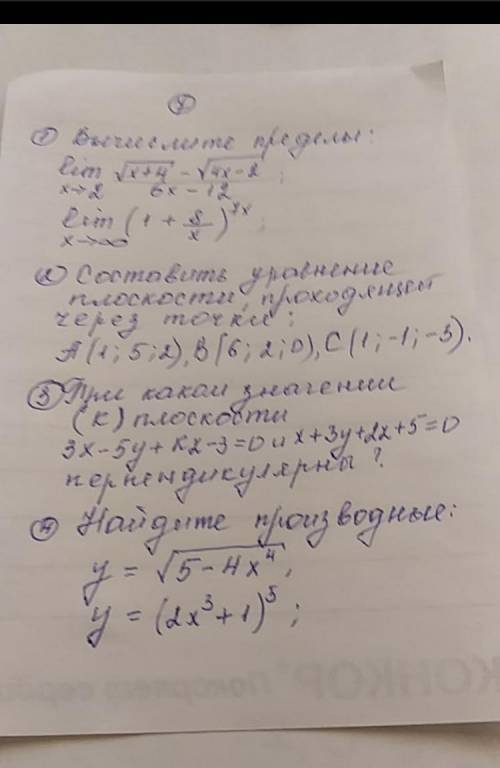 8
1) Вычислите пределы:
lim x→2 (√(x+4) - √(4x-2)) / (6x-12);
lim x→∞ (1 + 8/x)^7x;
2) Составить уравнение
плоскости, проходящей
через точки:
A(1; 5; 2), B(6; 2; 0), C(1; -1; -3).
3) При каком значении
(к) плоскости
3x-5y+Kz-3=0 и x+3y+2z+5=0
перпендикулярны?
4) Найдите производные:
y = √(5-4x⁴),
y = (2x³+1)⁵;